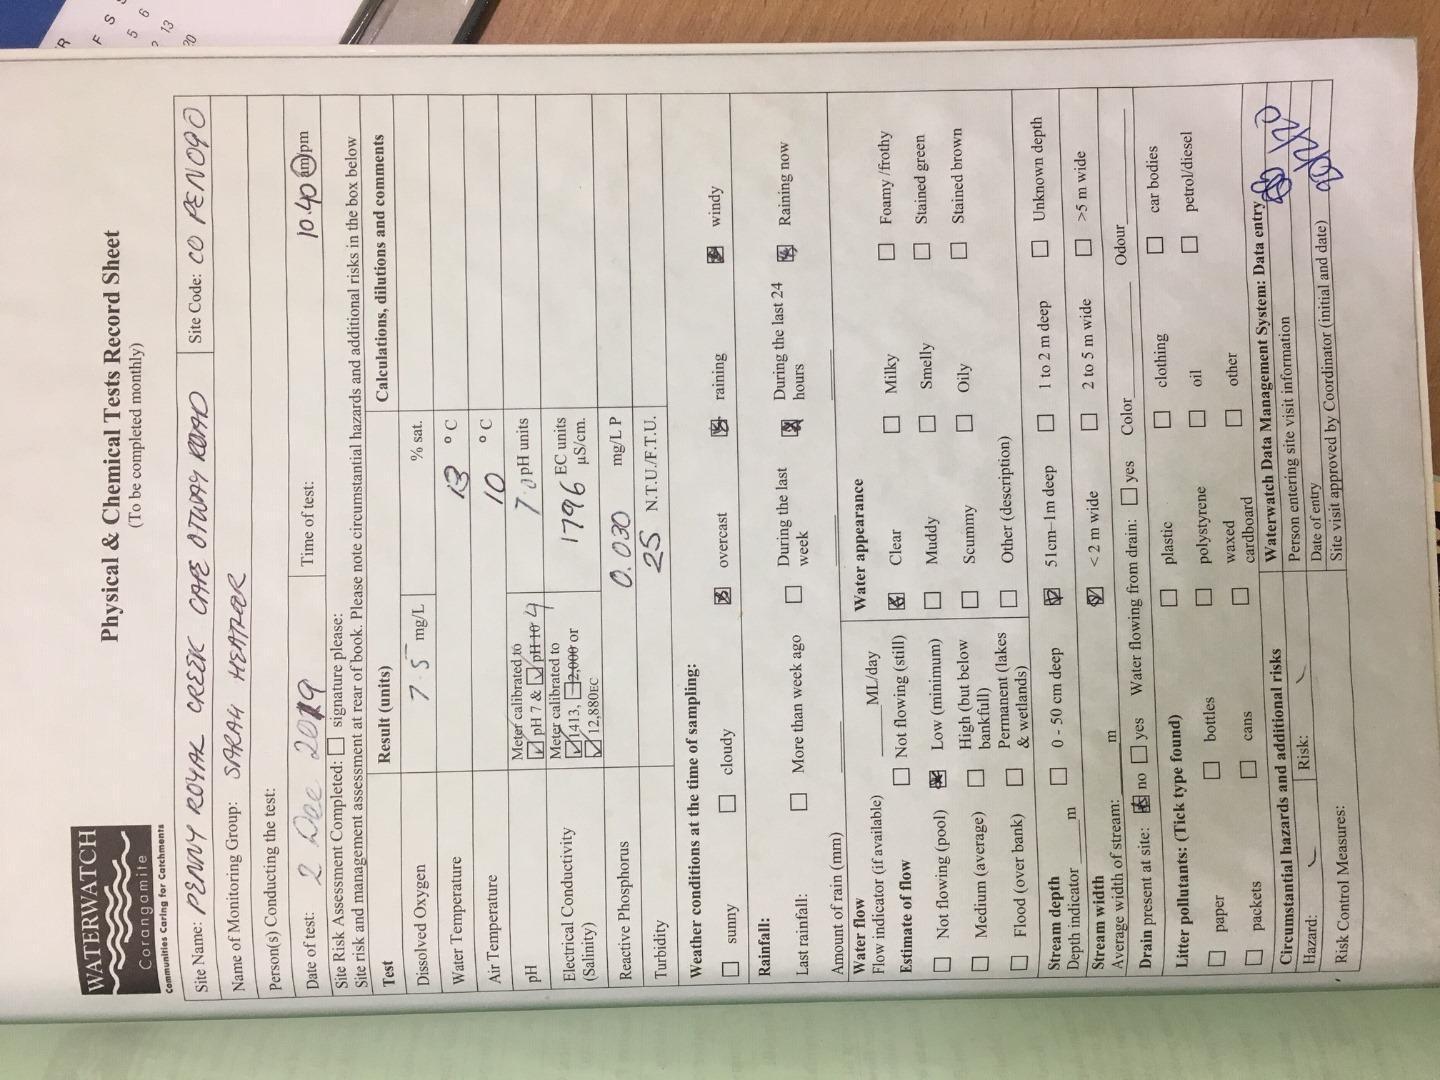 WATERWATCH
Corangamite
Communities Caring for Catchments
Physical & Chemical Tests Record Sheet
(To be completed monthly)
Site Name: PENNY ROYAL CREEK CAPE OTWAY ROAD Site Code: CO PEN090
Name of Monitoring Group: SARAH HEATHER
Person(s) Conducting the test:
Date of test: 2 Dec 2019 Time of test: 10.40 am/pm
Site Risk Assessment Completed: signature please:
Site risk and management assessment at rear of book. Please note circumstantial hazards and additional risks in the box below
Test Result (units) Calculations, dilutions and comments
Dissolved Oxygen 7.5 mg/L % sat.
Water Temperature 13 °C
Air Temperature 10 °C
pH Meter calibrated to pH 7 & pH 10 4 7.0 pH units
Electrical Conductivity (Salinity) Meter calibrated to 1,413, 2,000 or 12,880EC 1796 EC units µS/cm.
Reactive Phosphorus 0.030 mg/L P
Turbidity 25 N.T.U./F.T.U.
Weather conditions at the time of sampling:
sunny cloudy overcast raining windy
Rainfall:
Last rainfall: More than week ago During the last week During the last 24 hours Raining now
Amount of rain (mm)
Water flow
Flow indicator (if available) ML/day
Estimate of flow Not flowing (still)
Not flowing (pool) Low (minimum)
Medium (average) High (but below bankfull)
Flood (over bank) Permanent (lakes & wetlands)
Water appearance
Clear Milky Foamy /frothy
Muddy Smelly Stained green
Scummy Oily Stained brown
Other (description)
Stream depth
Depth indicator m 0 - 50 cm deep 51cm–1m deep 1 to 2 m deep Unknown depth
Stream width
Average width of stream: m < 2 m wide 2 to 5 m wide >5 m wide
Drain present at site: no yes Water flowing from drain: yes Color Odour
Litter pollutants: (Tick type found)
paper bottles plastic clothing car bodies
packets cans polystyrene oil petrol/diesel
waxed cardboard other
Circumstantial hazards and additional risks
Hazard: Risk:
Risk Control Measures:
Waterwatch Data Management System: Data entry
Person entering site visit information
Date of entry
Site visit approved by Coordinator (initial and date)